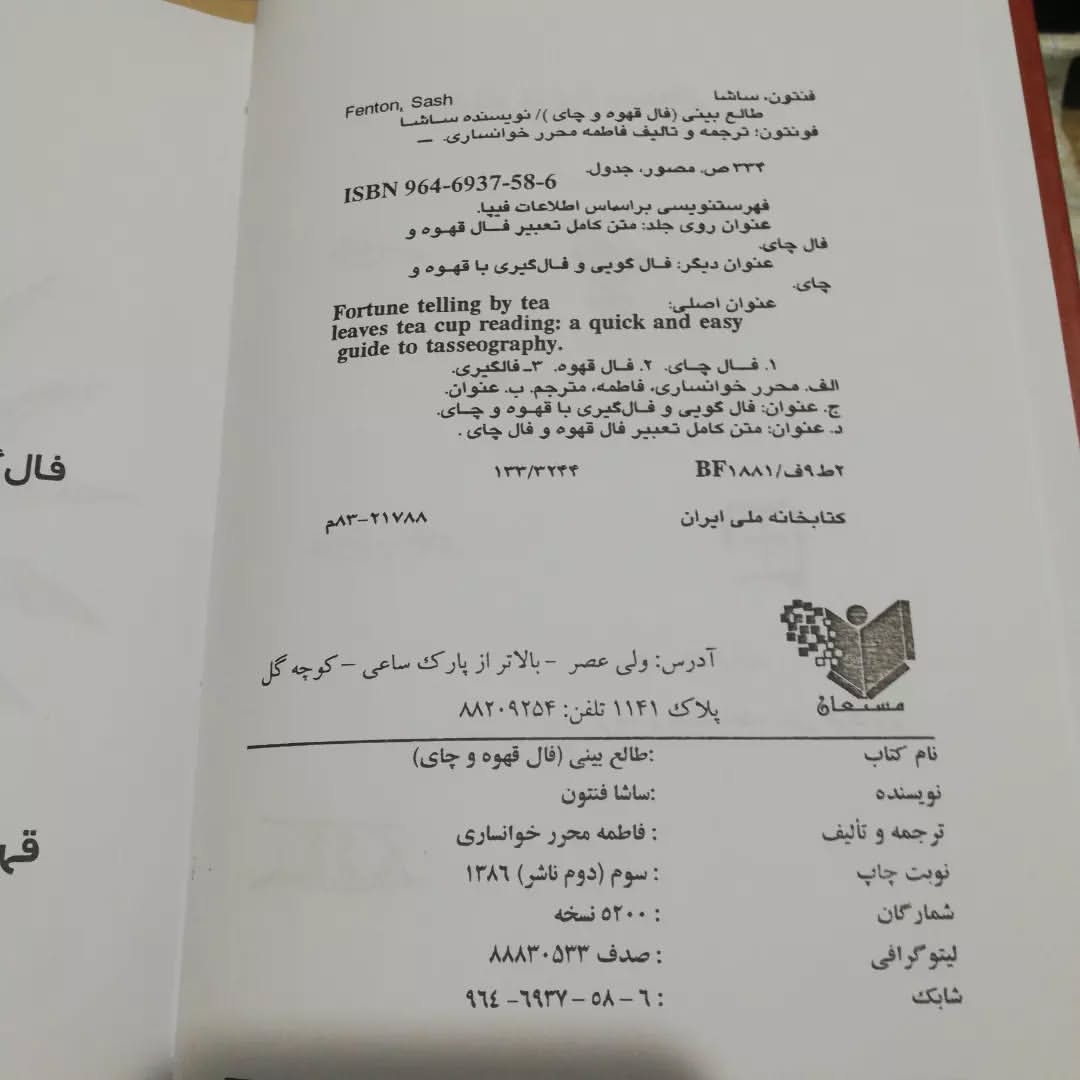 فنتون، ساشا Fenton, Sash
طالع بینی (فال قهوه و چای )/ نویسنده ساشا
فونتون؛ ترجمه و تالیف فاطمه محرر خوانساری. ــ
۳۳۴ ص. مصور، جدول.
ISBN 964-6937-58-6
فهرستنویسی براساس اطلاعات فیپا.
عنوان روی جلد: متن کامل تعبیر فال قهوه و
فال چای.
عنوان دیگر: فال گویی و فال‌گیری با قهوه و
چای.
عنوان اصلی: Fortune telling by tea
leaves tea cup reading: a quick and easy
guide to tasseography.
۱. فال چای. ۲. فال قهوه. ۳ـ فالگیری.
الف. محرر خوانساری، فاطمه، مترجم. ب. عنوان.
ج. عنوان: فال گویی و فال‌گیری با قهوه و چای.
د. عنوان: متن کامل تعبیر فال قهوه و فال چای .
۲ط۹ف/BF۱۸۸۱ ۱۳۳/۳۲۴۴
کتابخانه ملی ایران ۸۳-۲۱۷۸۸م
مستعان
آدرس: ولی عصر - بالاتر از پارک ساعی - کوچه گل
پلاک ۱۱۴۱ تلفن: ۸۸۲۰۹۲۵۴
نام کتاب :طالع بینی (فال قهوه و چای)
نویسنده :ساشا فنتون
ترجمه و تألیف : فاطمه محرر خوانساری
نوبت چاپ : سوم (دوم ناشر) ۱۳۸۶
شمارگان : ۵۲۰۰ نسخه
لیتوگرافی : صدف ۸۸۸۳۰۵۳۳
شابک : ۶ - ۵۸ - ۶۹۳۷ - ۹۶۴